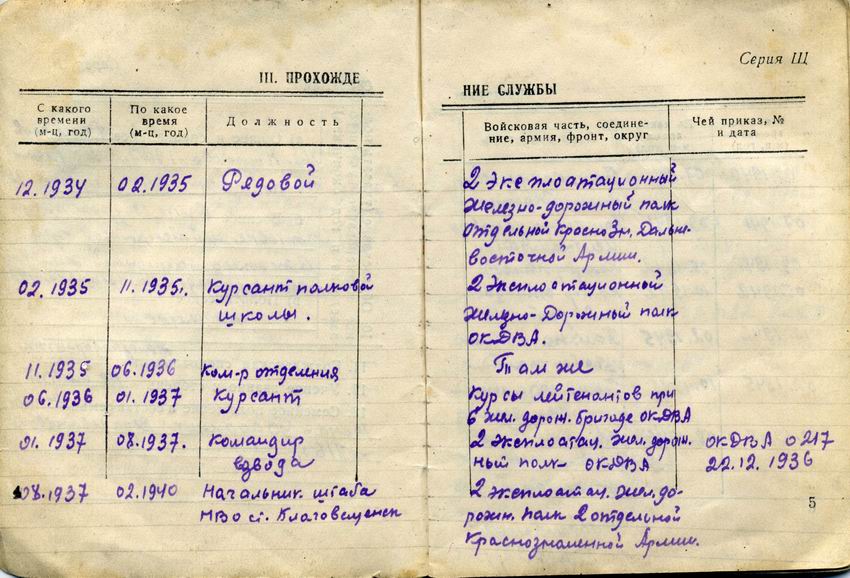 Серия Щ
III. ПРОХОЖДЕ
НИЕ СЛУЖБЫ
С какого времени (м-ц, год)
По какое время (м-ц, год)
Должность
Войсковая часть, соедине-
ние, армия, фронт, округ
Чей приказ, №
и дата
12.1934 02.1935 Рядовой 2 Эксплоатационный
Железно-дорожный полк
отдельной Краснозн. Дальне-
восточной Армии.
02.1935 11.1935. Курсант полковой 2 Эксплоатационной
школы. Железно-Дорожный полк
ОКДВА.
11.1935 06.1936 Ком-р отделения Там же
06.1936 01.1937 Курсант Курсы лейтенантов при
6 жел. дорож. бригаде ОКДВА
01.1937 08.1937. Командир 2 Эксплоатац. жел. дорож. ОКДВА 0217
взвода ный полк ОКДВА 22.12.1936
08.1937 02.1940 Начальник штаба 2 эксплоатац. жел. до-
МВО ст. Благовещенск рожн. полк 2 отдельной
Краснознаменной Армии.
5